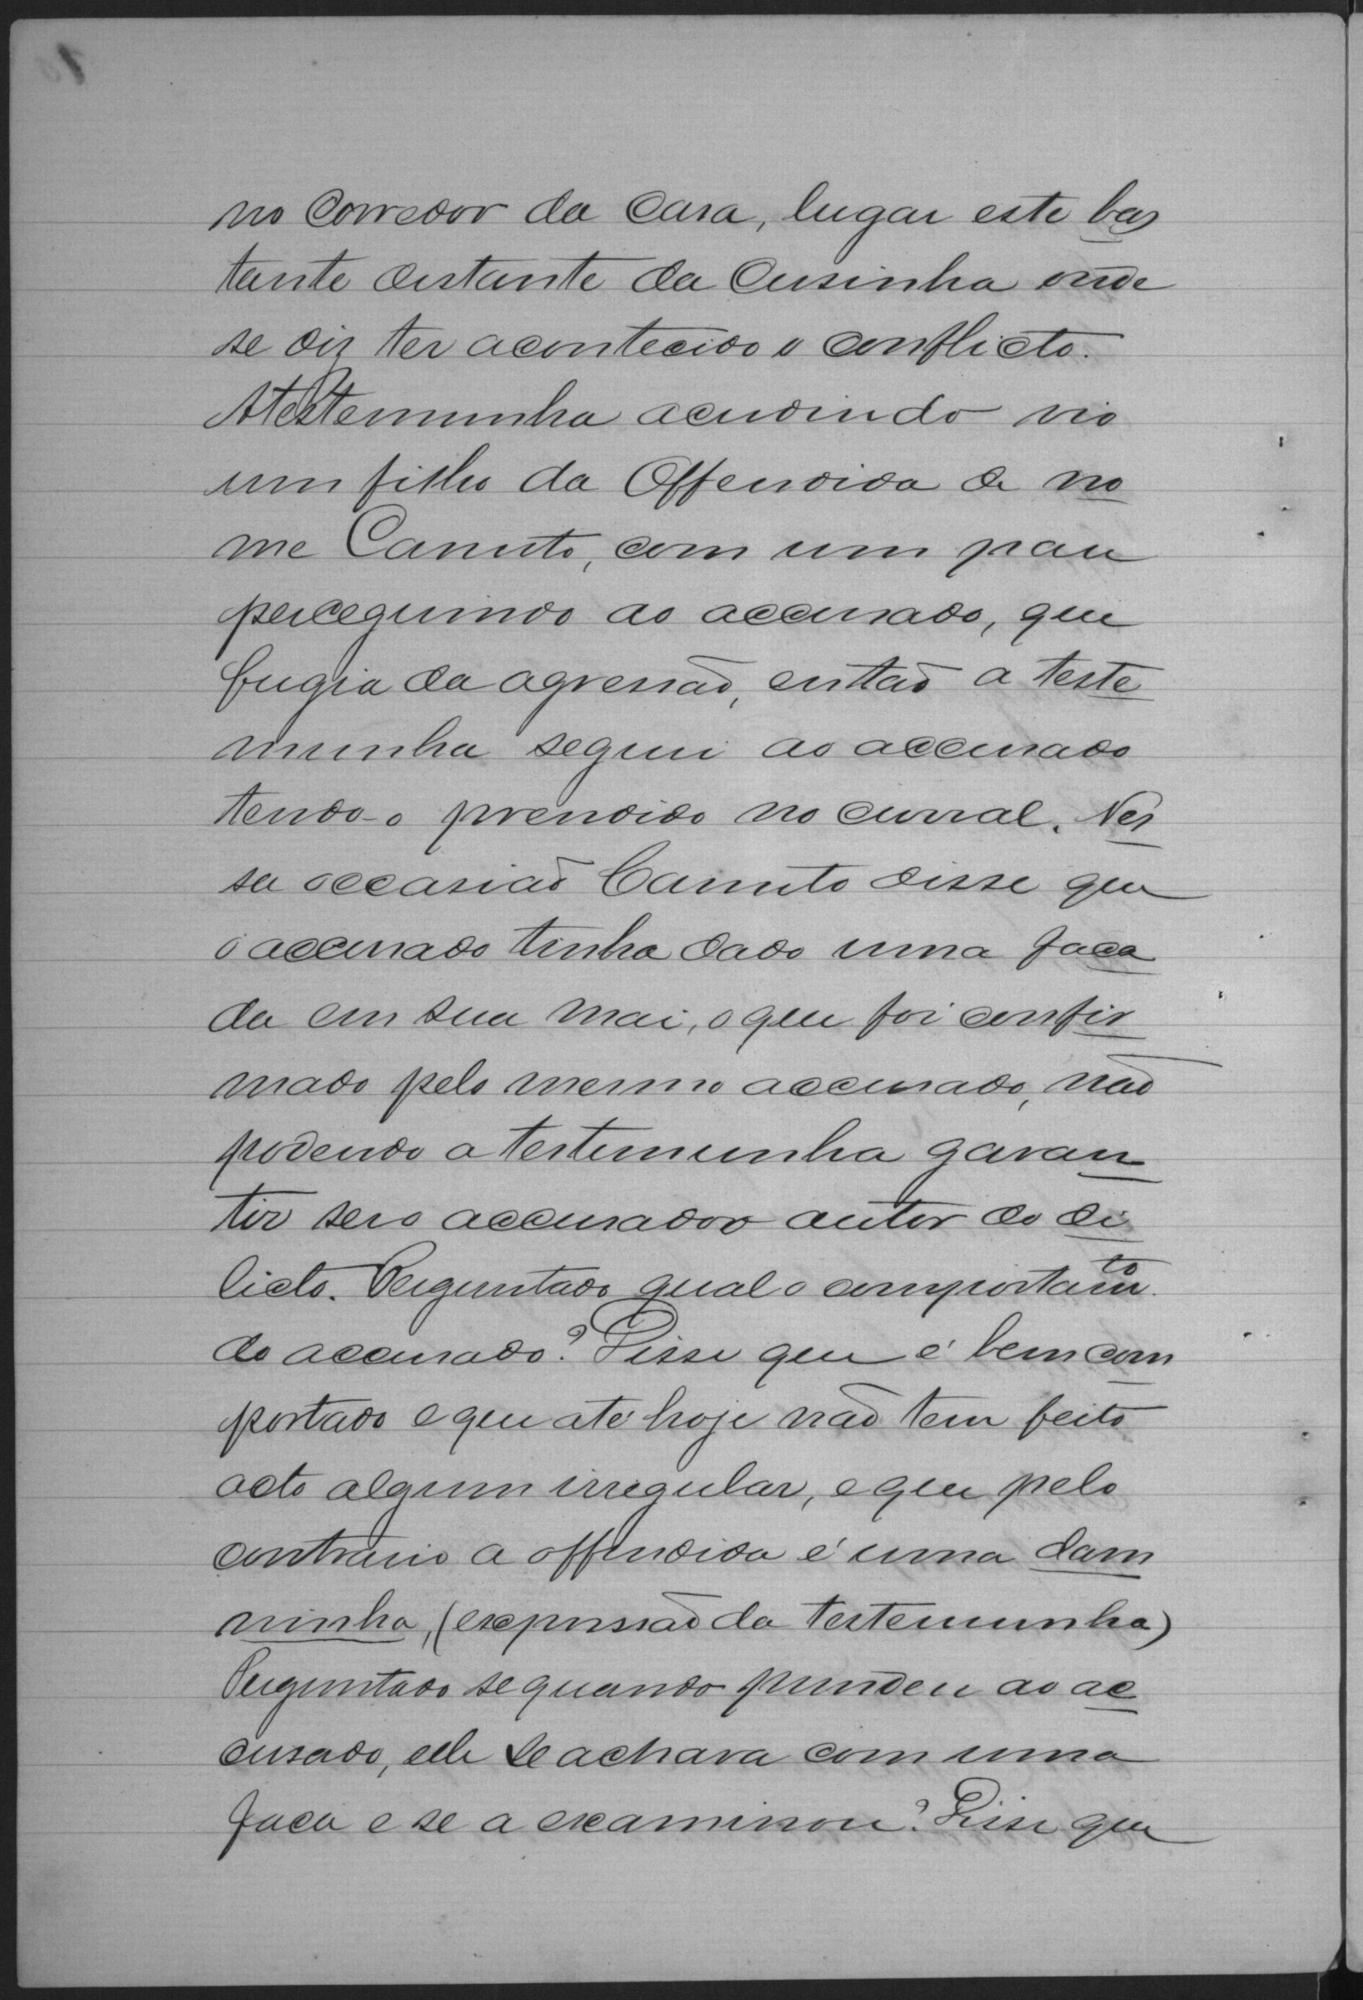 no corredor da casa, lugar este bas
tante distante da cusinha onde
se diz ter acontecido o conflicto.
A testemunha acudindo vio
um filho da Offendida de no
me Canuto, com um pau
perceguindo ao accusado, que
fugia da agressão, então a teste
munha seguiu ao accusado
tendo-o prendido no curral. Nes
sa occasião Canuto disse que
o accusado tinha dado uma faca
da em sua mai, o que foi confir
mado pelo mesmo accusado, não
podendo a testemunha garan
tir ser o accusado o autor do di
licto. Perguntado qual o comportamto.
do accusado? Disse que é bem com
portado e que até hoje não tem feito
acto algum irregular, e que pelo
contrario a offendida é uma dam
ninha, (expressão da testemunha)
Perguntado se quando prendeu ao ac
cusado, elle se achava com uma
faca e se a examinou? Disse que